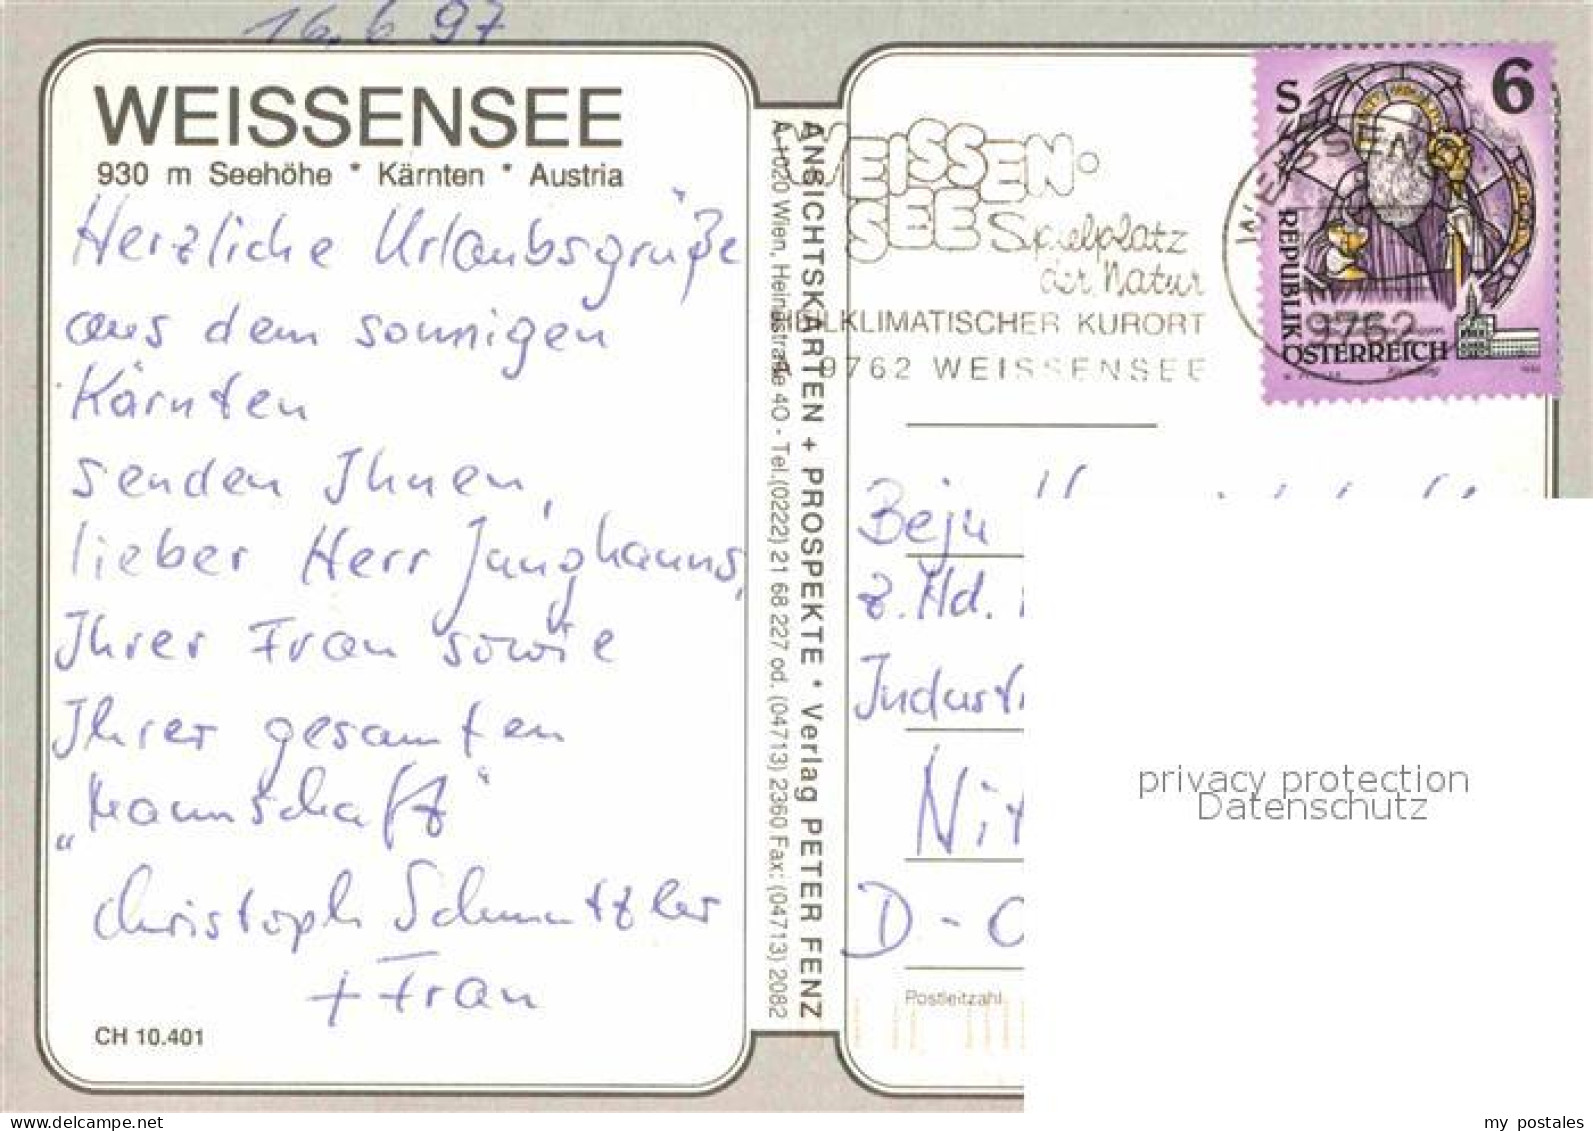 16.6.97
WEISSENSEE
930 m Seehöhe * Kärnten * Austria
Herzliche Urlaubsgrüße
aus dem sonnigen
Kärnten
senden Ihnen,
lieber Herr Junghanns,
Ihrer Frau sowie
Ihrer gesamten
„Mannschaft“
Christoph Schmutzler
+ Frau
CH 10.401
ANSICHTSKARTEN + PROSPEKTE * Verlag PETER FENZ
A-1020 Wien, Heinestraße 40 - Tel.(0222) 21 68 227 od. (04713) 2360 Fax: (04713) 2082
WEISSEN-
SEE Spielplatz
der Natur
HEILKLIMATISCHER KURORT
9762 WEISSENSEE
S 6
REPUBLIK
ÖSTERREICH
9762
Beju
z. Hd.
Industr
Nit
D-0
Postleitzahl
privacy protection
Datenschutz
delcampe.net
my postales